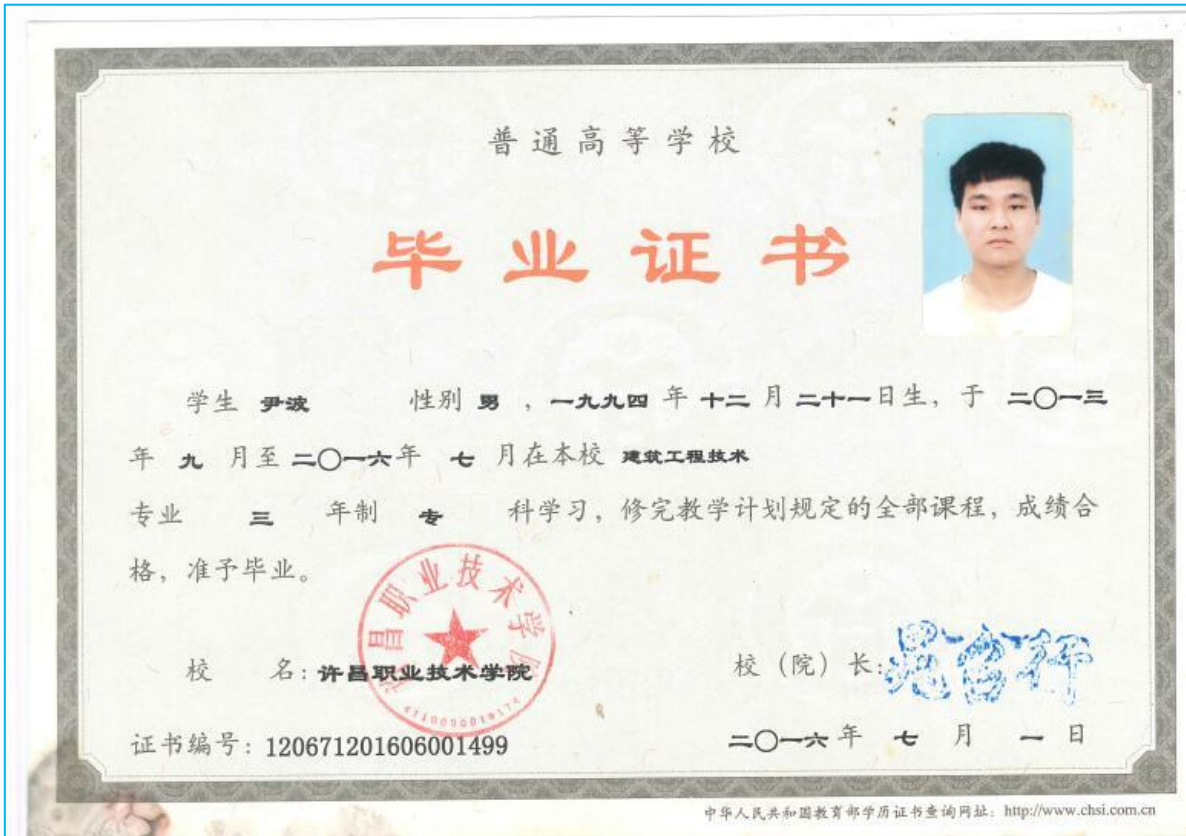 普通高等学校
毕业证书
学生 尹波 性别 男 ，一九九四 年 十二 月 二十一日生，于 二〇一三
年 九 月至 二〇一六年 七 月在本校 建筑工程技术
专业 三 年制 专 科学习，修完教学计划规定的全部课程，成绩合
格，准予毕业。
许昌职业技术学院
校 名：许昌职业技术学院
校（院）长：
证书编号：120671201606001499
二〇一六 年 七 月 一 日
中华人民共和国教育部学历证书查询网址：http://www.chsi.com.cn